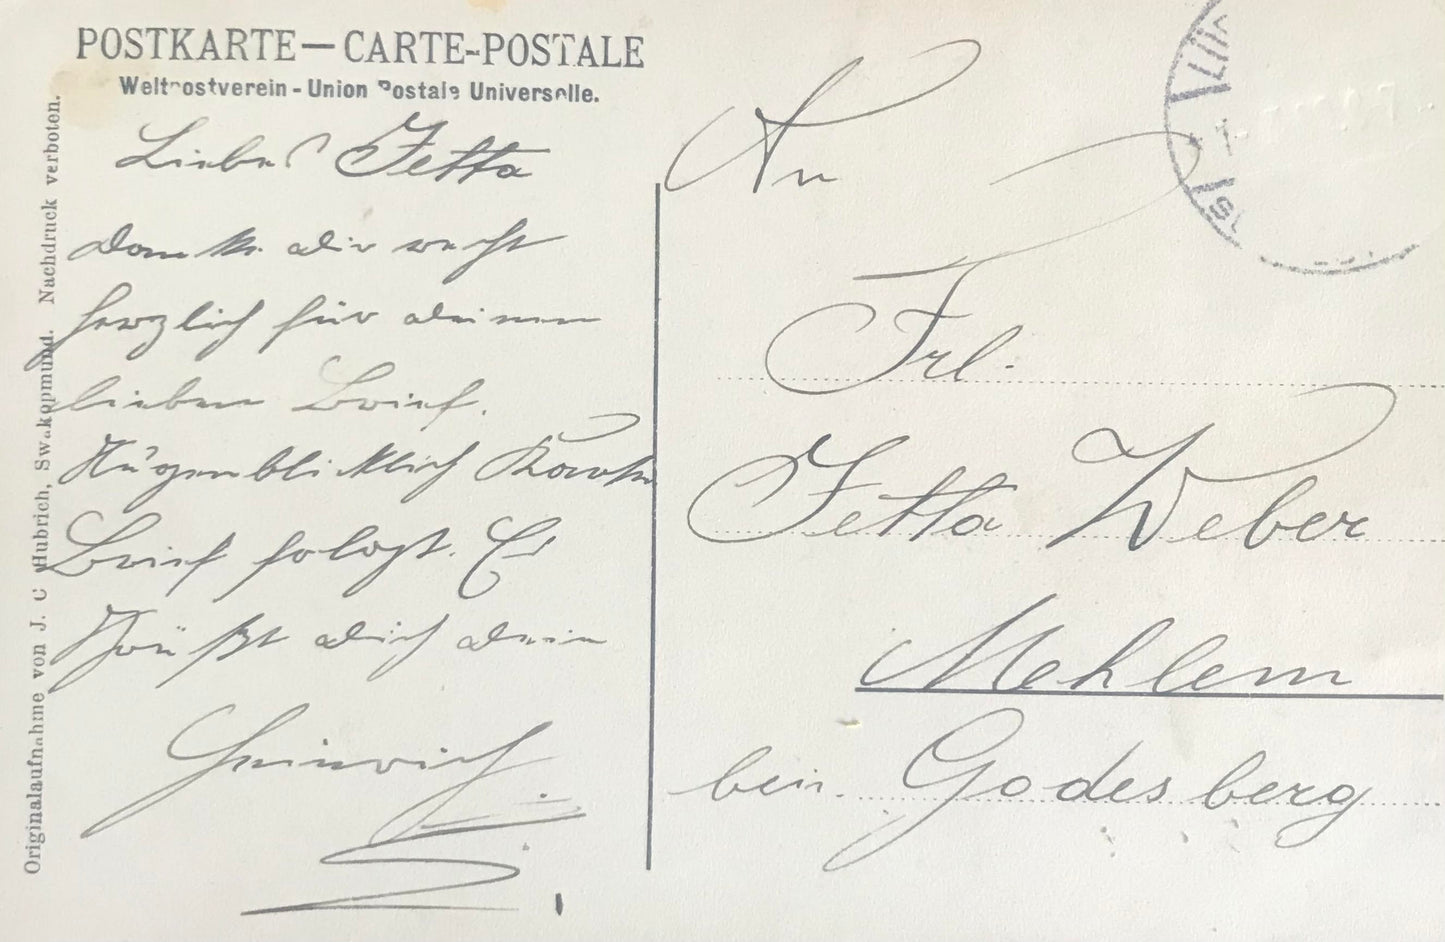 POSTKARTE — CARTE-POSTALE
Weltpostverein - Union Postale Universelle.
Liebe Jetta
Danke dir recht
herzlich für deinen
lieben Brief.
Augenblicklich Karte
Brief folgt. Es
Grüßt dich dein
Heinrich.
Originalaufnahme von J. C Hubrich, Swakopmund. Nachdruck verboten.
An
Frl.
Jetta Weber
Mehlem
bei. Godesberg